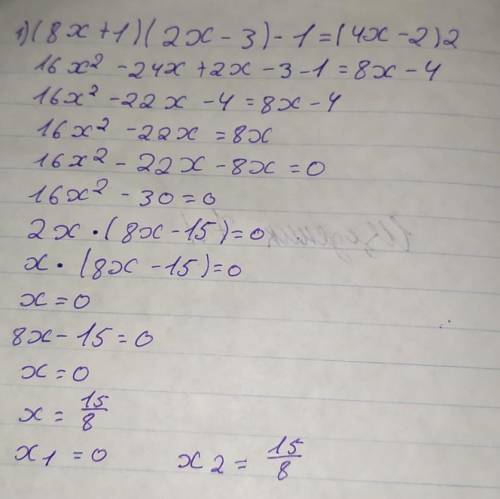 1) (8x+1)(2x-3)-1=(4x-2)2
16x² -24x+2x-3-1=8x-4
16x² -22x-4=8x-4
16x² -22x=8x
16x² -22x-8x=0
16x² -30=0
2x•(8x-15)=0
x•(8x-15)=0
x=0
8x-15=0
x=0
x=15/8
x1=0 x2=15/8